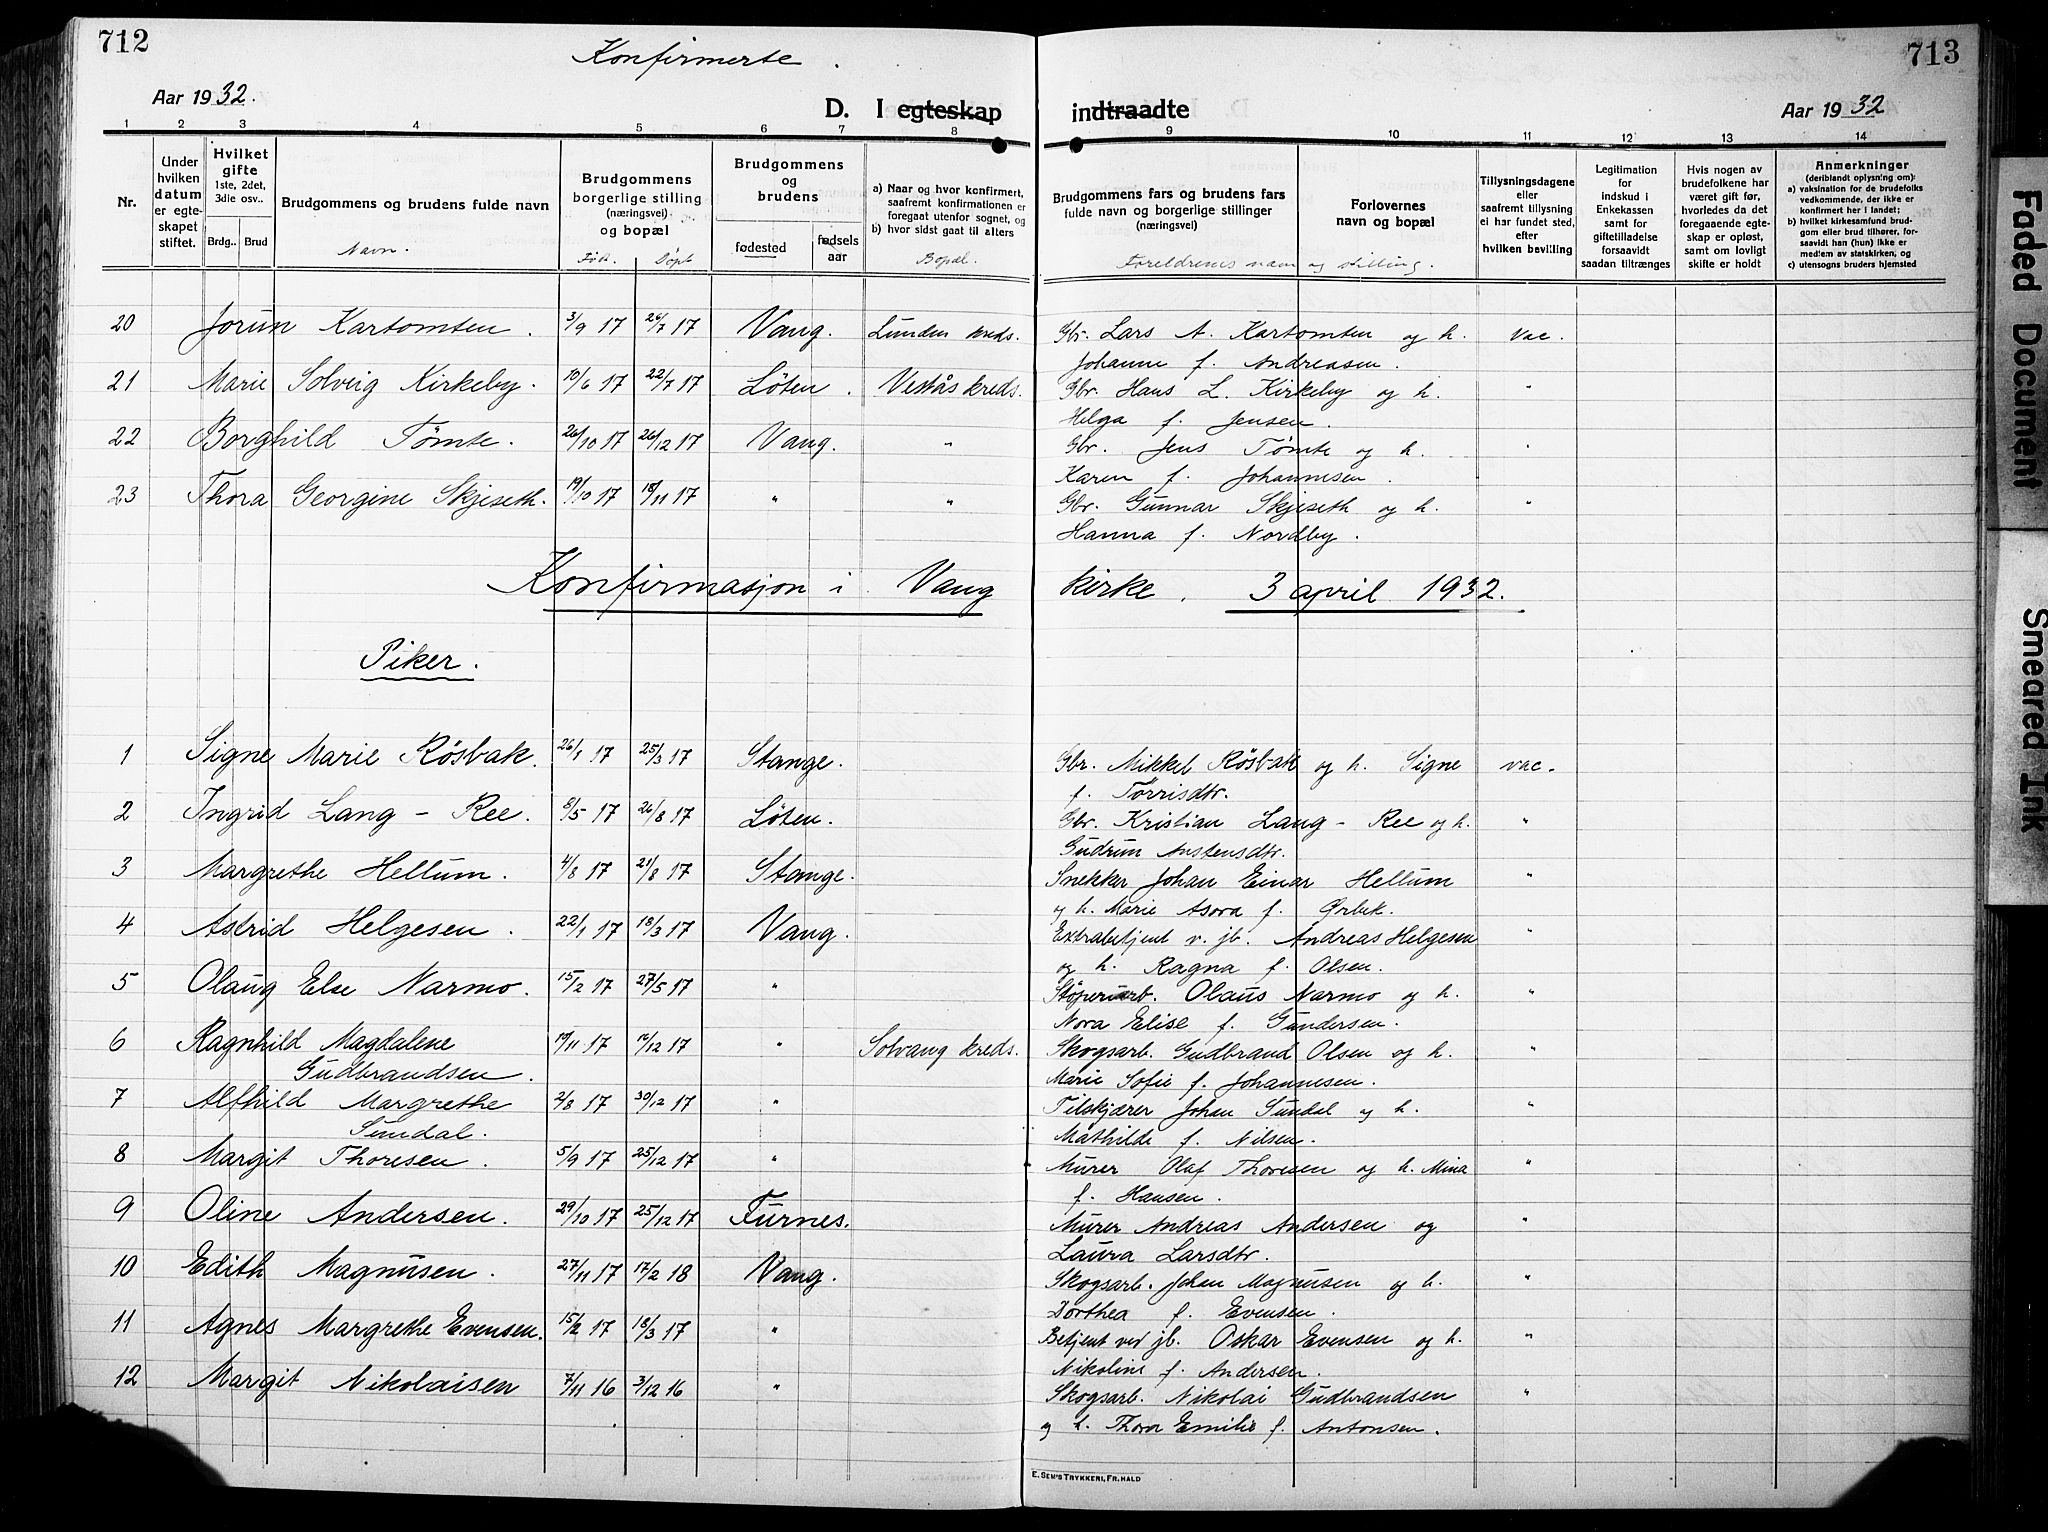 712
Konfirmerte.
713
Aar 1932.
D. I egteskap indtraadte
Aar 1932
1 2 3 4 5 6 7 8 9 10 11 12 13 14
Nr.
Under hvilken datum er egteskapet stiftet.
Hvilket gifte 1ste, 2det, 3die osv..
Brdg.. Brud
Brudgommens og brudens fulde navn
Navn.
Brudgommens borgerlige stilling (næringsvei) og bopæl
Født Döpt
Brudgommens og brudens
fødested
fødselsaar
a) Naar og hvor konfirmert, saafremt konfirmationen er foregaat utenfor sognet, og
b) hvor sidst gaat til alters
Bopæl.
Brudgommens fars og brudens fars fulde navn og borgerlige stillinger (næringsvei)
Foreldrenes navn og stilling.
Forlovernes navn og bopæl
Tillysningsdagene eller saafremt tillysning ei har fundet sted, efter hvilken bevilling
Legitimation for indskud i Enkekassen samt for giftetilladelse forsaavidt saadan tiltrænges
Hvis nogen av brudefolkene har været gift før, hvorledes da det foregaaende egteskap er opløst, samt om lovligt skifte er holdt
Anmerkninger (deriblandt oplysning om):
a) vaksination for de brudefolks vedkommende, der ikke er konfirmert her i landet;
b) hvilket kirkesamfund brudgom eller brud tilhører, forsaavidt han (hun) ikke er medlem av statskirken, og
c) utensogns bruders hjemsted
20 Jorun Kartomten. 3/9 17 26/7 17 Vang. Lunden kreds. Gbr. Lars A. Kartomten og h. Vac.
Johanne f. Andreasen.
21 Marie Solveig Kirkeby. 10/6 17 22/7 17 Löten. Vestås kreds. Gbr. Hans L. Kirkeby og h. "
Helga f. Jensen.
22 Borghild Tømte. 26/10 17 26/12 17 Vang. " Gbr. Jens Tømte og h. "
Karen f. Johannesen.
23 Thora Georgine Skjeseth. 19/10 17 18/11 17 " " Gbr. Gunnar Skjeseth og h. "
Hanna f. Nordby.
Konfirmasjon i Vang kirke. 3 april 1932.
Piker.
1 Signe Marie Rösbak. 26/1 17 25/3 17 Stange. Gbr. Mikkel Rösbak og h. Signe vac.
f. Torrisdtr.
2 Ingrid Lang - Ree. 8/5 17 26/8 17 Löten. Gbr. Kristian Lang - Ree og h. "
Gudrun Austensdtr.
3 Margrethe Hellum. 4/8 17 21/8 17 Stange. Snekker Johan Einar Hellum "
og h. Marie Asora f. Ørbek.
4 Astrid Helgesen. 22/1 17 18/3 17 Vang. Extrabetjent v. jb. Andreas Helgesen "
og h. Ragna f. Olsen.
5 Olaug Else Narmo. 15/2 17 27/5 17 " Støperiarb. Olaus Narmo og h. "
Nora Elise f. Gundersen.
6 Ragnhild Magdalene 19/11 17 16/12 17 " Solvang kreds. Skogsarb. Gudbrand Olsen og h. "
Gudbrandsen. Marie Sofie f. Johannesen.
7 Alfhild Margrethe 2/8 17 30/12 17 " Tilskjærer Johan Sundal og h. "
Sundal. Mathilde f. Nilsen.
8 Margit Thoresen. 5/9 17 25/12 17 " Murer Olaf Thoresen og h. Mina "
f. Hansen.
9 Oline Andersen. 29/10 17 25/12 17 Furnes. Murer Andreas Andersen og "
Laura Larsdtr.
10 Edith Magnusen. 27/11 17 17/2 18 Vang. Skogsarb. Johan Magnusen og h. "
Dorthea f. Evensen.
11 Agnes Margrethe Evensen. 15/2 17 18/3 17 " Betjent ved jb. Oskar Evensen og h. "
Nikoline f. Andersen.
12 Margit Nikolaisen 7/11 16 3/12 16 " Skogsarb. Nikolai Gudbrandsen "
og h. Thora Emilie f. Antonsen.
E. SEM'S TRYKKERI, FR.HALD
Faded Document
Smeared Ink